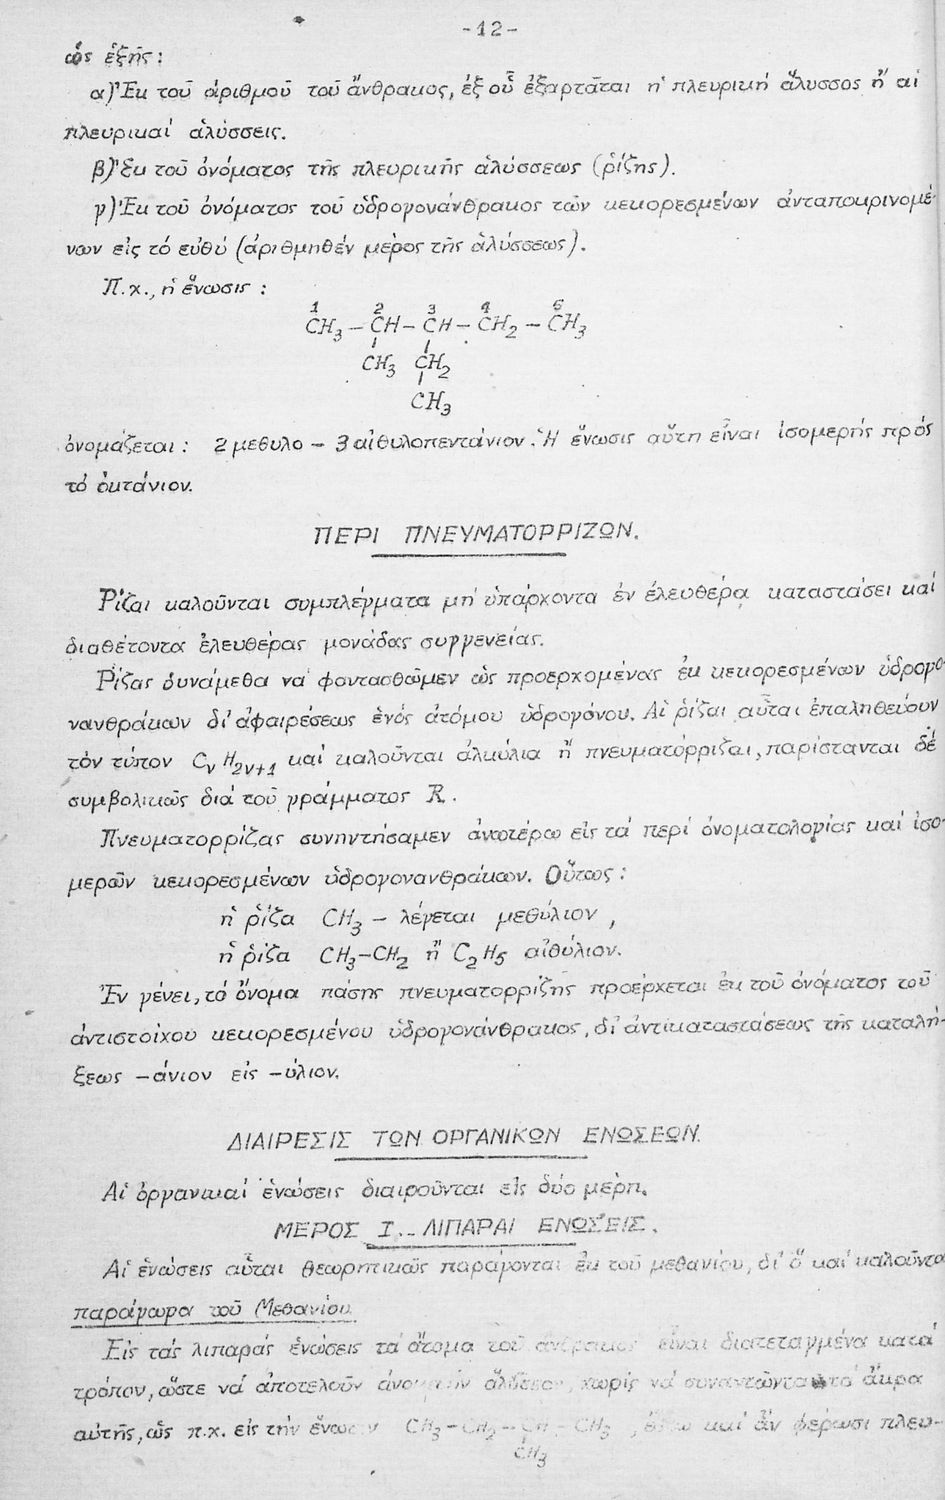 -12-
ὡς ἑξῆς:
α) Ἐκ τοῦ ἀριθμοῦ τοῦ ἄνθρακος, ἐξ οὗ ἐξαρτᾶται ἡ πλευρική ἄλυσσος ἤ αἱ
πλευρικαί ἁλύσσεις.
β) Ἐκ τοῦ ὀνόματος τῆς πλευρικῆς ἁλύσσεως (ρίζης).
γ) Ἐκ τοῦ ὀνόματος τοῦ ὑδρογονάνθρακος τῶν κεκορεσμένων ἀνταποκρινομέ-
νων εἰς τό εὐθύ (ἀριθμηθέν μέρος τῆς ἁλύσσεως).
Π.χ., ἡ ἕνωσις:
1 2 3 4 5
CH3 – CH – CH – CH2 – CH3
CH3 CH2
CH3
ὀνομάζεται: 2 μεθυλο – 3 αἰθυλοπεντάνιον. Ἡ ἕνωσις αὕτη εἶναι ἰσομερής πρός
τό ὀκτάνιον.
ΠΕΡΙ ΠΝΕΥΜΑΤΟΡΡΙΖΩΝ.
Ρίζαι καλοῦνται συμπλέγματα μή ὑπάρχοντα ἐν ἐλευθέρᾳ καταστάσει καί
διαθέτοντα ἐλευθέρας μονάδας συγγενείας.
Ρίζας δυνάμεθα νά φαντασθῶμεν ὡς προερχομένας ἐκ κεκορεσμένων ὑδρογο-
νανθράκων δι' ἀφαιρέσεως ἑνός ἀτόμου ὑδρογόνου. Αἱ ρίζαι αὗται ἐπαληθεύουν
τόν τύπον CνH2ν+1 καί καλοῦνται ἀλκύλια ἤ πνευματόρριζαι, παρίστανται δέ
συμβολικῶς διά τοῦ γράμματος R.
Πνευματορρίζας συνηντήσαμεν ἀνωτέρω εἰς τά περί ὀνοματολογίας καί ἰσο-
μερῶν κεκορεσμένων ὑδρογονανθράκων. Οὕτως:
ἡ ρίζα CH3 – λέγεται μεθύλιον,
ἡ ρίζα CH3–CH2 ἤ C2H5 αἰθύλιον.
Ἐν γένει, τό ὄνομα πάσης πνευματορρίζης προέρχεται ἐκ τοῦ ὀνόματος τοῦ
ἀντιστοίχου κεκορεσμένου ὑδρογονάνθρακος, δι' ἀντικαταστάσεως τῆς καταλή-
ξεως –άνιον εἰς –ύλιον.
ΔΙΑΙΡΕΣΙΣ ΤΩΝ ΟΡΓΑΝΙΚΩΝ ΕΝΩΣΕΩΝ.
Αἱ ὀργανικαί ἑνώσεις διαιροῦνται εἰς δύο μέρη.
ΜΕΡΟΣ Ι.. ΛΙΠΑΡΑΙ ΕΝΩΣΕΙΣ.
Αἱ ἑνώσεις αὗται θεωρητικῶς παράγονται ἐκ τοῦ μεθανίου, δι' ὅ καί καλοῦνται
παράγωγα τοῦ Μεθανίου.
Εἰς τάς λιπαράς ἑνώσεις τά ἄτομα τοῦ ἄνθρακος εἶναι διατεταγμένα κατά
τρόπον, ὥστε νά ἀποτελοῦν ἀνοικτήν ἄλυσσον, χωρίς νά συναντῶνται τά ἄκρα
αὐτῆς, ὡς π.χ. εἰς τήν ἕνωσιν CH3 – CH2 – CH – CH3, ἔστω καί ἄν φέρωσι πλευ-
CH3